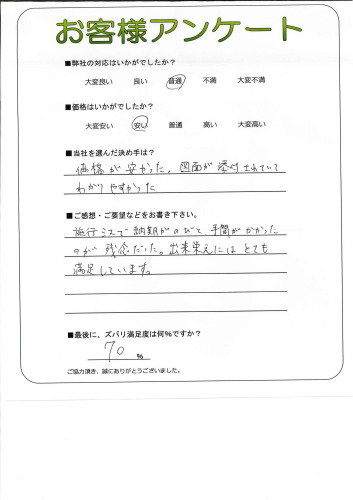 お客様アンケート
■弊社の対応はいかがでしたか?
大変良い 良い 普通 不満 大変不満
■価格はいかがでしたか?
大変安い 安い 普通 高い 大変高い
■当社を選んだ決め手は?
価格が安かった，図面が添付されていて
わかりやすかった
■ご感想・ご要望などをお書き下さい。
施行ミスで納期がのびて手間がかかった
のが残念だった。出来栄えにはとても
満足しています。
■最後に、ズバリ満足度は何%ですか?
70 %
ご協力頂き、誠にありがとうございました。